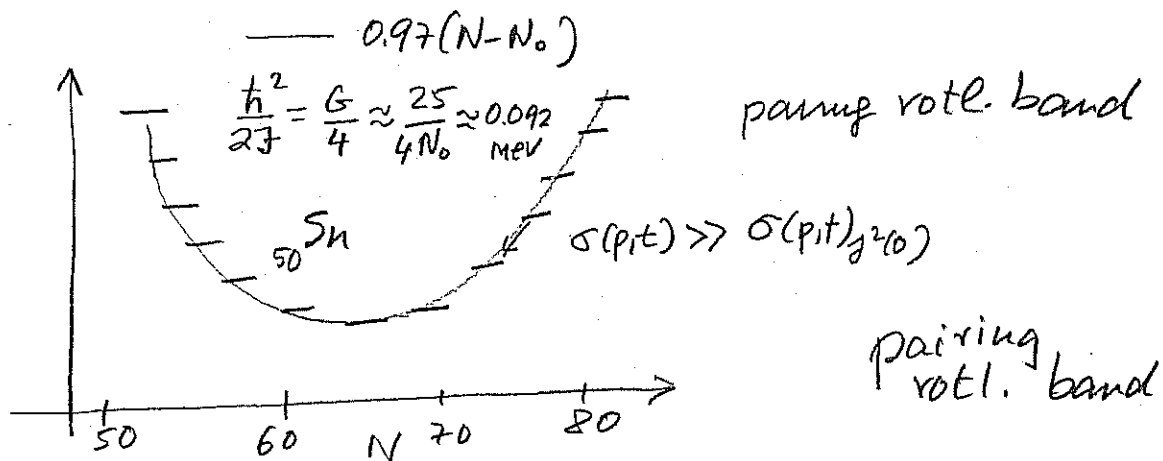 — 0.97(N-N₀)
ħ²/2J = G/4 ≈ 25/4N₀ ≈ 0.092 MeV
pairing rotl. band
₅₀Sn
σ(p,t) >> σ(p,t)j²(0)
pairing
rotl. band
50 60 N 70 80